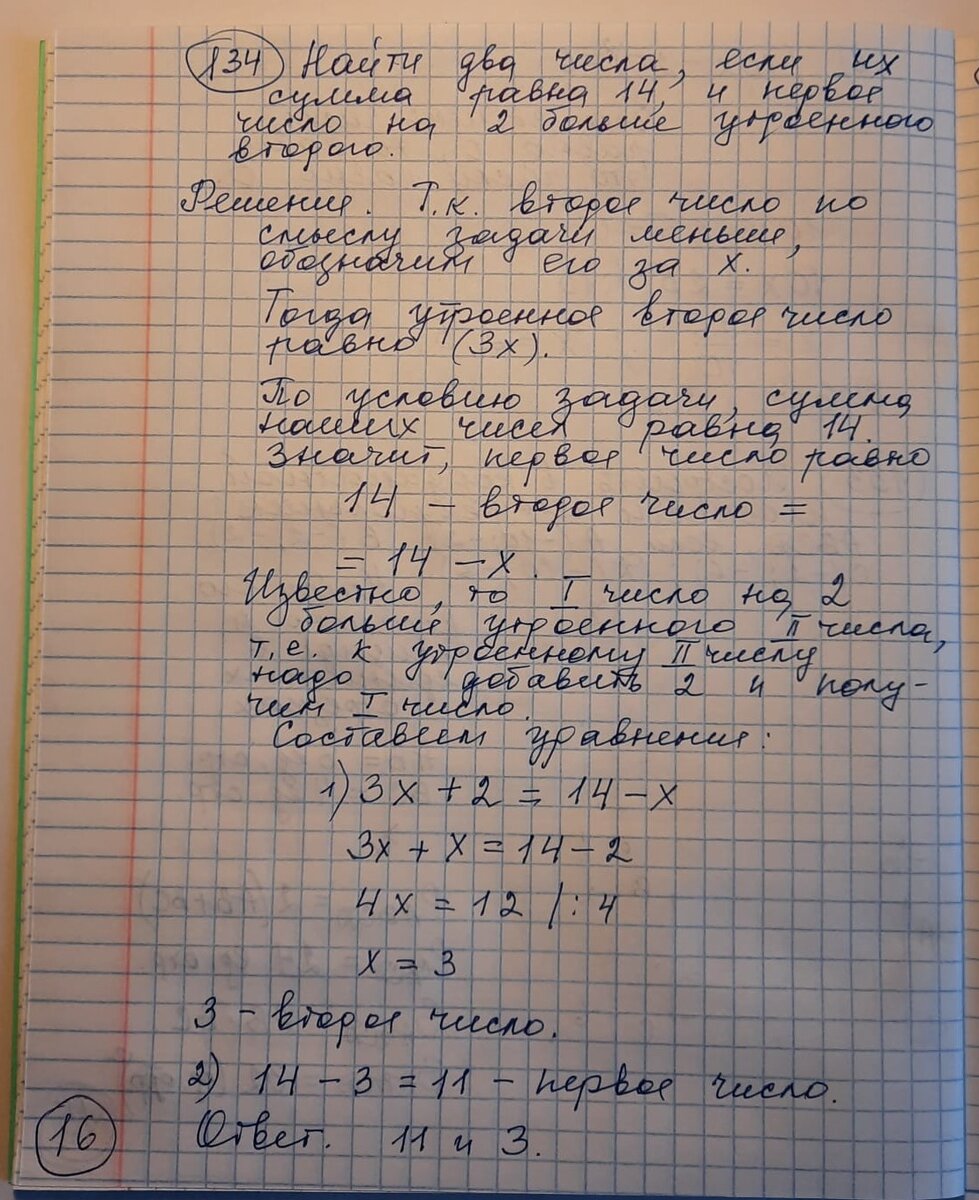 134 Найти два числа, если их
сумма равна 14, и первое
число на 2 больше утроенного
второго.
Решение. Т.к. второе число по
смыслу задачи меньше,
обозначим его за x.
Тогда утроенное второе число
равно (3x).
По условию задачи, сумма
наших чисел равна 14.
Значит, первое число равно
14 – второе число =
= 14 – x.
Известно, то I число на 2
больше утроенного II числа,
т.е. к утроенному II числу
надо добавить 2 и полу-
чим I число.
Составим уравнение:
1) 3x + 2 = 14 – x
3x + x = 14 – 2
4x = 12 /: 4
x = 3
3 – второе число.
2) 14 – 3 = 11 – первое число.
16 Ответ. 11 и 3.